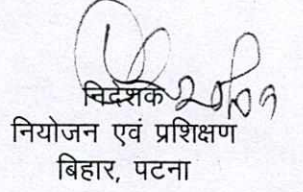 निदेशक
नियोजन एवं प्रशिक्षण
बिहार, पटना